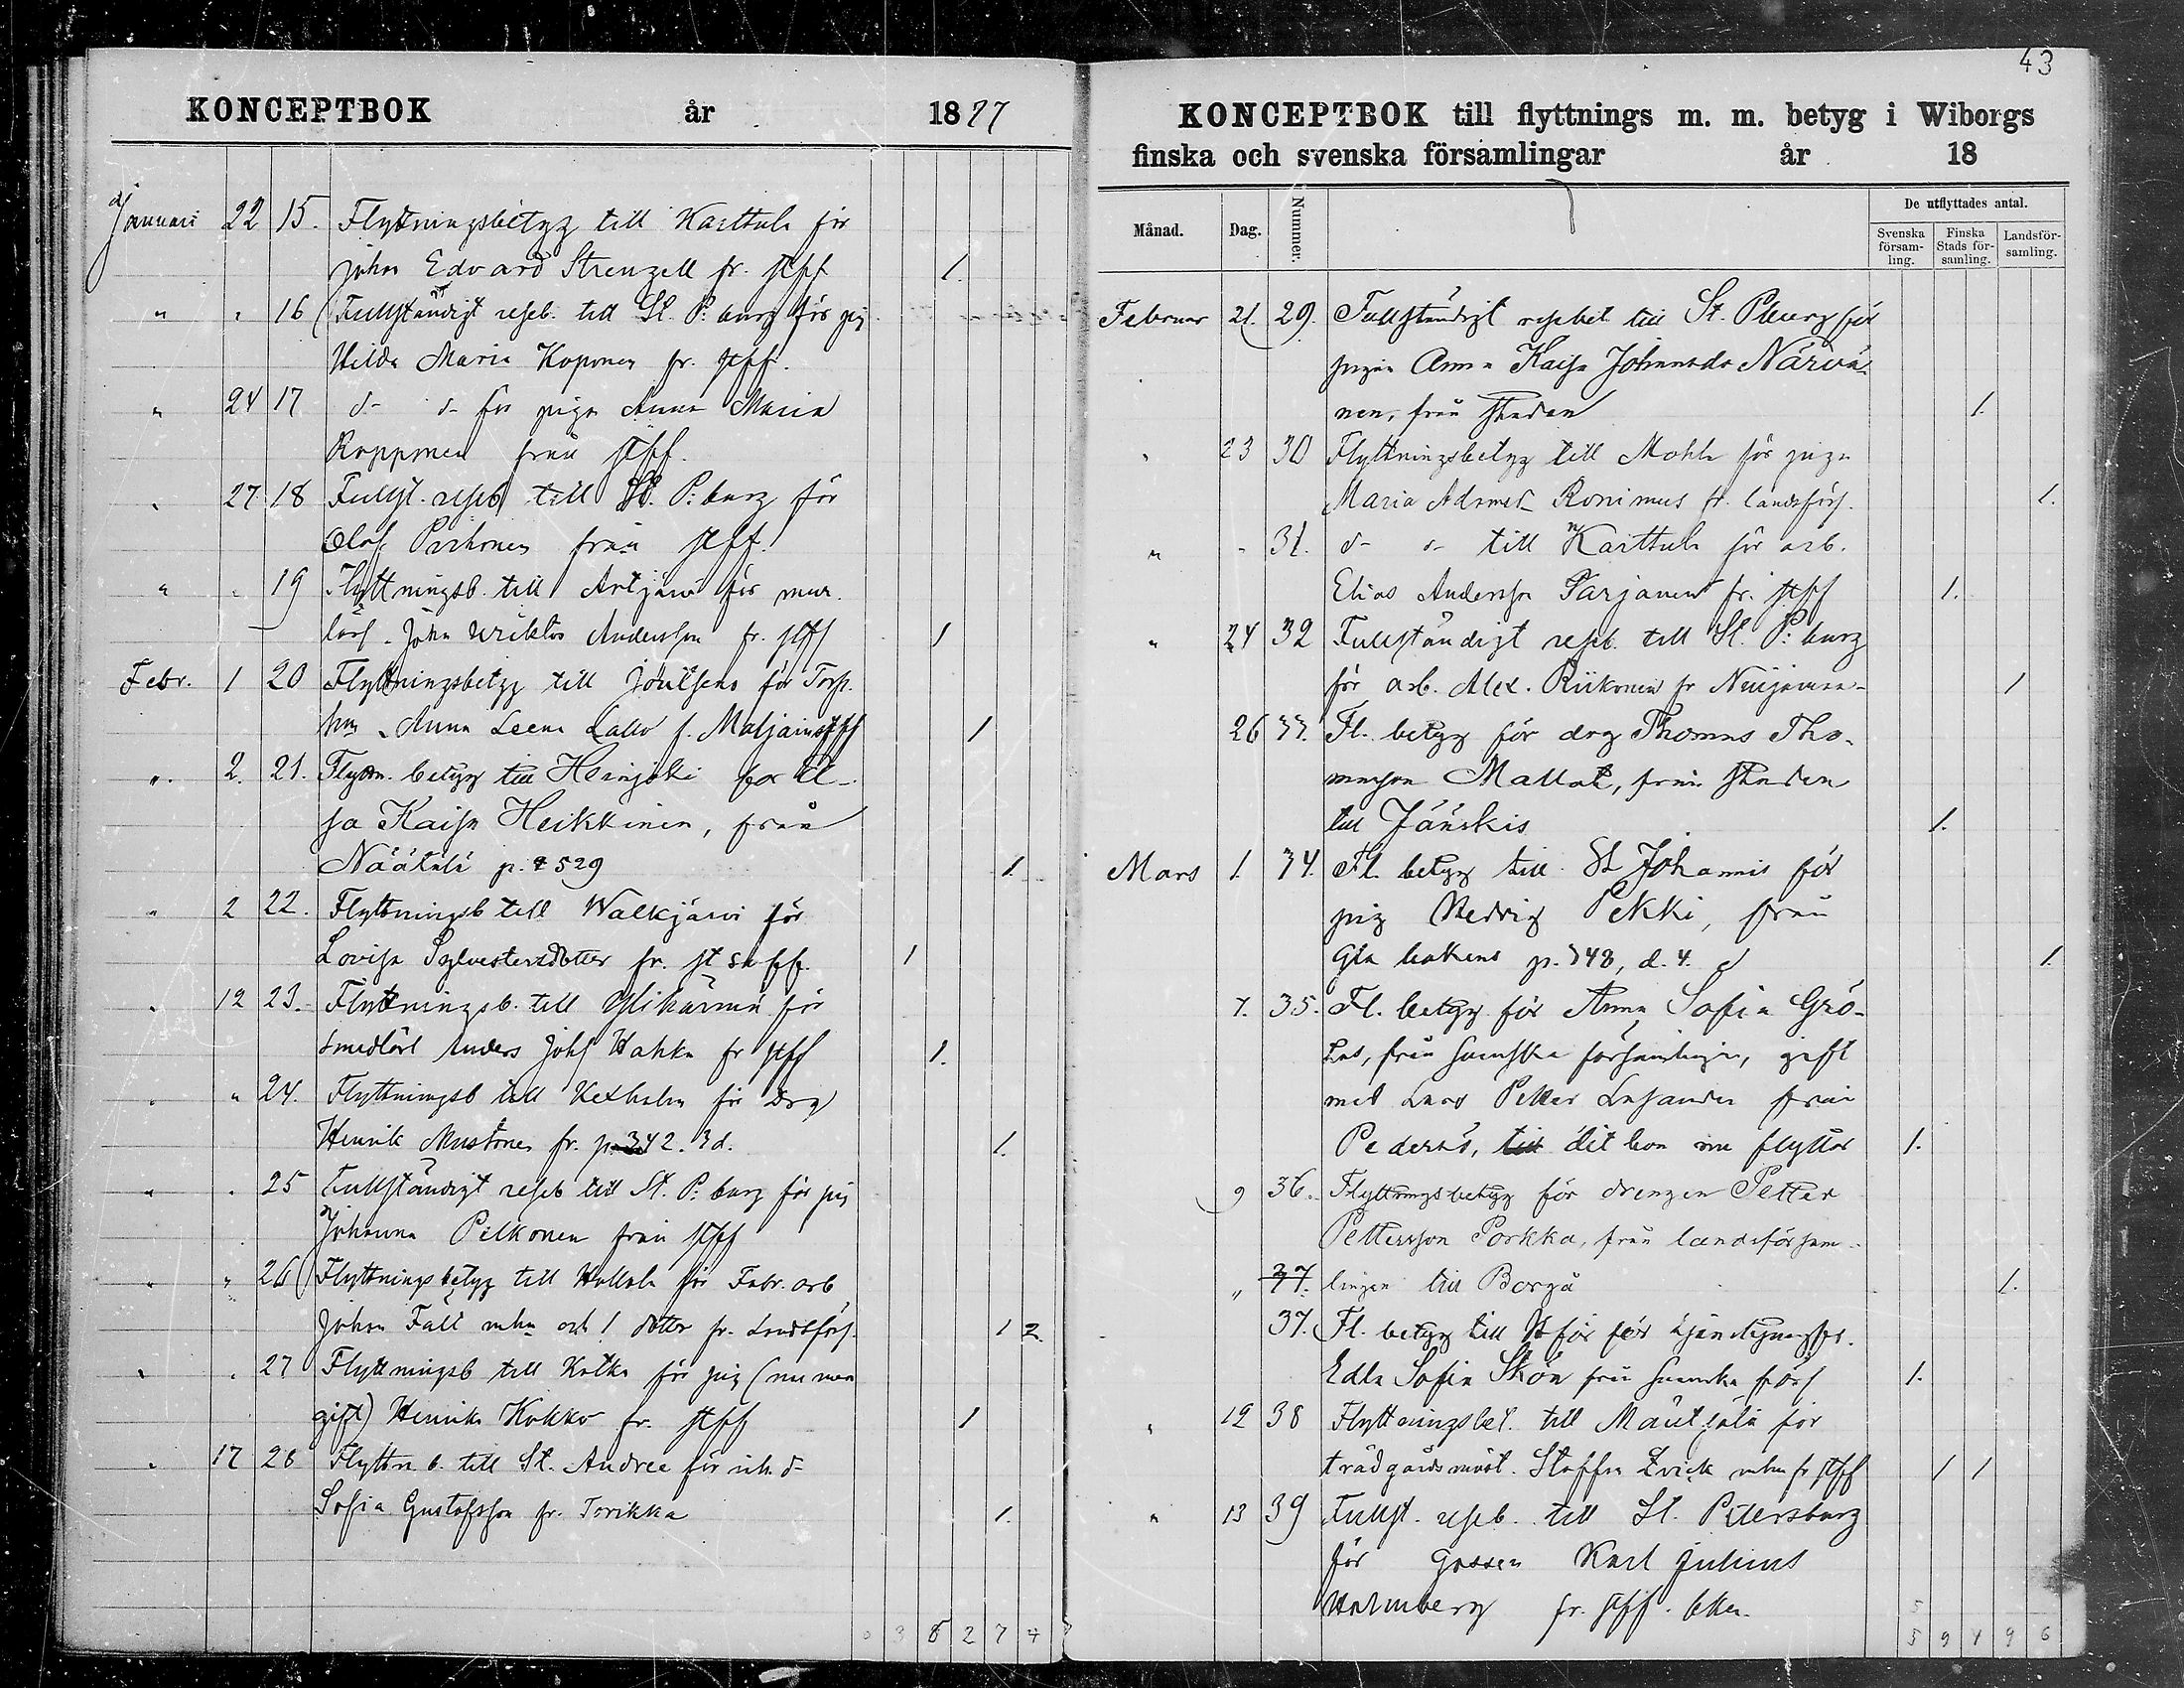 KONCEPTBOK år 1877
Januari 22 15. Flyttningsbetyg till Karttula för
Johan Edvard Strenzell fr. stff 1.
" " 16 Fullständigt reseb. till St. P:burg för pig
Hilda Maria Koponen fr. stff.
" 24 17 d- d- för pigan Anna Maria
Ropponen från stff.
" 27 18 Fullst. reseb till St. P:burg för
Olof Pirhonen från stff.
" " 19 Flyttningsb. till Artjärvi för mur.
lärl. Johan Wiktor Andersson fr. stff 1
Febr. 1 20 Flyttningsbetyg till Joutseno för Torp.
Anna Leena Lallo f. stff 1
". 2. 21. Flyttn. betyg till Heinjoki for El-
sa Kaisa Heikkinen, från
Näätälä p. 529 1.
" 2 22. Flyttningsb till Walkjärvi för
Lovisa Sylvestersdotter fr. st sv ff. 1
" 12 23. Flyttningsb. till Ylihärmä för
smedlärl Anders Johs Hahka fr stff 1.
" " 24. Flyttningsb till Kexholm för Drg
Henrik Mustonen fr. p. 342. 3d. 1.
" " 25 Fullständigt reseb till St. P:burg för pig
Johanna Pelkonen från stff
" " 26 Flyttningsbetyg till Hollola för Fabr. arb
Johan Fält mhu och 1 dotter fr. Landsförs. 1 2.
" " 27 Flyttningsb till Kotka för pig (numera
gift) Henrika Kokko fr. stff 1
" 17 28 Flyttn b. till St. Andree för inh. d-
Sofia Gustafsson fr. Torikka 1.
3 8 2 7 4
43
KONCEPTBOK till flyttnings m. m. betyg i Wiborgs
finska och svenska församlingar år 18
Månad. Dag. Nummer. De utflyttades antal.
Svenska försam-ling. Finska Stads för-samling. Landsför-samling.
Februar 21. 29. Fullständigt resebet till St. Pburg för
pigan Anna Kaisa Johansdr Närvä-
nen, från staden 1.
" 23 30 Flyttningsbetyg till Mohla för pigan
Maria Adamsd. Ronimus fr. landsförs. 1.
" " 31. d- d- till Karttula för arb.
Elias Andersson Parjanen fr. stff 1.
" 24 32 Fullständigt reseb. till St. P:burg
för arb. Alex. Riikonen fr Nuijamaa 1
26 33. Fl. betyg för drg Thomas Tho-
masson Mallat, från staden
till Jääskis 1.
Mars 1. 34. Fl. betyg till St Johannis för
pig Hedvig Pekki, från
Gla kakens p. 348, d. 4. 1.
7. 35. Fl. betyg för Anna Sofia Grö-
, från svenska församlingen, gift
med Lars Petter från
Pedersö, till dit hon nu flyttar 1.
9 36. Flyttningsbetyg för drengen Petter
Pettersson Porkka, från landsförsam-
" 37. lingen till Borgå 1.
37. Fl. betyg till H:fors för
Edla Sofia Skön från svenska förs 1.
" 12 38 Flyttningsbet. till Mäntsälä för
trädgårdsmäst. Staffan Zwick mhu fr stff 1 1
" 13 39 Fullst. reseb. till St. Petersburg
för gossen Karl Julius
Holmberg fr. stff.
5
5 9 4 9 6